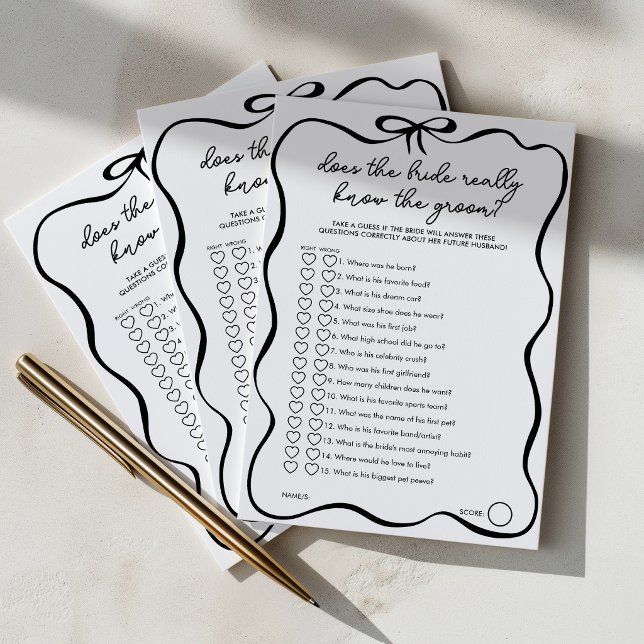 does the bride really
know the groom?
TAKE A GUESS IF THE BRIDE WILL ANSWER THESE
QUESTIONS CORRECTLY ABOUT HER FUTURE HUSBAND!
RIGHT WRONG
1. Where was he born?
2. What is his favorite food?
3. What is his dream car?
4. What size shoe does he wear?
5. What was his first job?
6. What high school did he go to?
7. Who is his celebrity crush?
8. Who was his first girlfriend?
9. How many children does he want?
10. What is his favorite sports team?
11. What was the name of his first pet?
12. Who is his favorite band/artist?
13. What is the bride's most annoying habit?
14. Where would he love to live?
15. What is his biggest pet peeve?
NAME/S:
SCORE:
does the
know
TAKE A GUESS
QUESTIONS CO
RIGHT WRONG
1. Wh
2. W
3. W
4.
5.
6
does the
know
TAKE A GUES
QUESTIONS CO
RIGHT WRONG
1. Whe
2. Wh
3. W
4.
5.